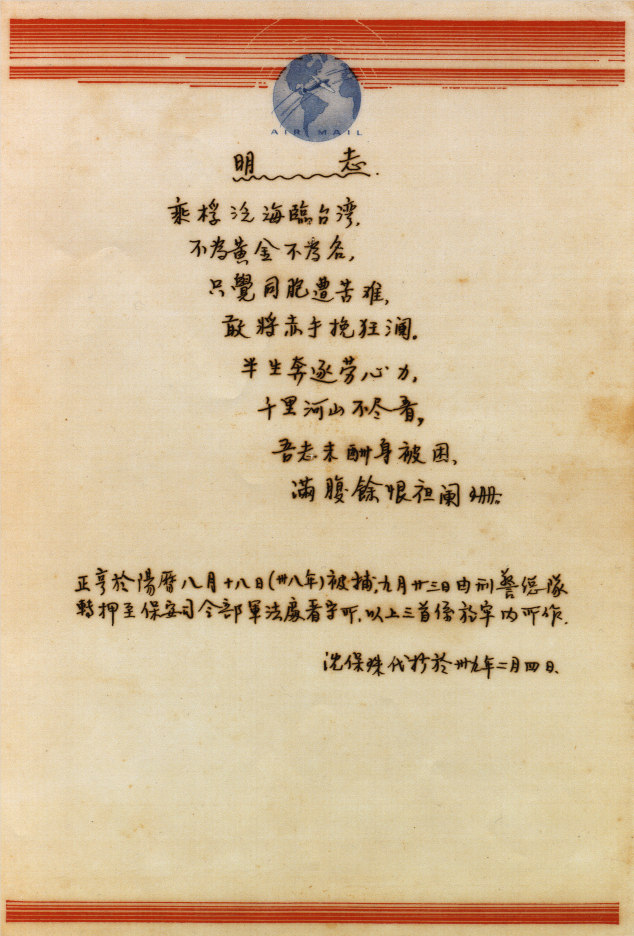 AIR MAIL
明志.
乘桴泛海臨台湾,
不為黄金不為名,
只覺同胞遭苦难,
敢將赤手挽狂澜。
半生奔逐劳心力,
千里河山不尽看,
吾志未酬身被困,
滿腹餘恨袓阑珊.
正亨於陽曆八月十八日(卅八年)被捕,九月廿三日由刑警總隊
轉押至保安司令部軍法處看守所,以上三首係於牢内所作.
沈保珠代抄於卅九年二月四日、